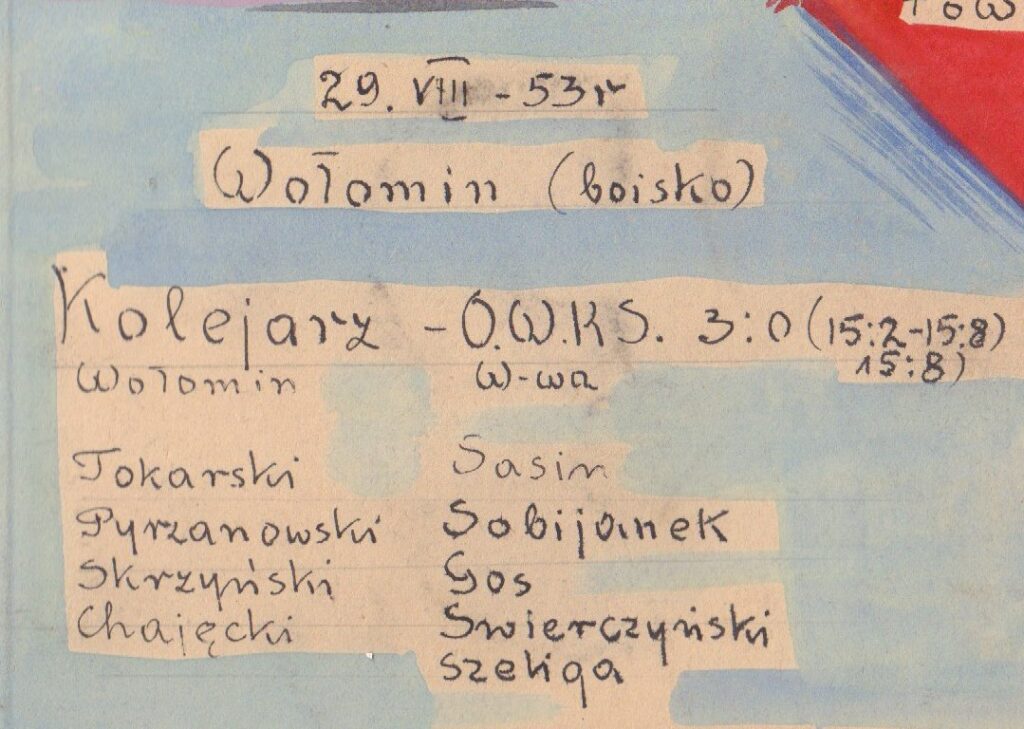 29. VIII - 53r
Wołomin (boisko)
Kolejarz - O.W.K.S. 3:0 (15:2-15:8)
15:8)
Wołomin W-wa
Tokarski Sasin
Pyrzanowski Sobijanek
Skrzyński Gos
Chajęcki Swierczyński
Szeliga